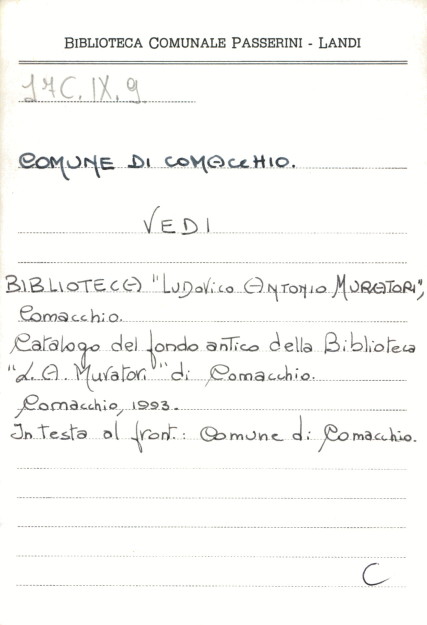 BIBLIOTECA COMUNALE PASSERINI - LANDI
17C. IX. 9
COMUNE DI COMACCHIO.
VEDI
BIBLIOTECA "LUDOVICO ANTONIO MURATORI",
Comacchio.
Catalogo del fondo antico della Biblioteca
"L. A. Muratori" di Comacchio.
Comacchio, 1993.
In testa al front.: Comune di Comacchio.
C